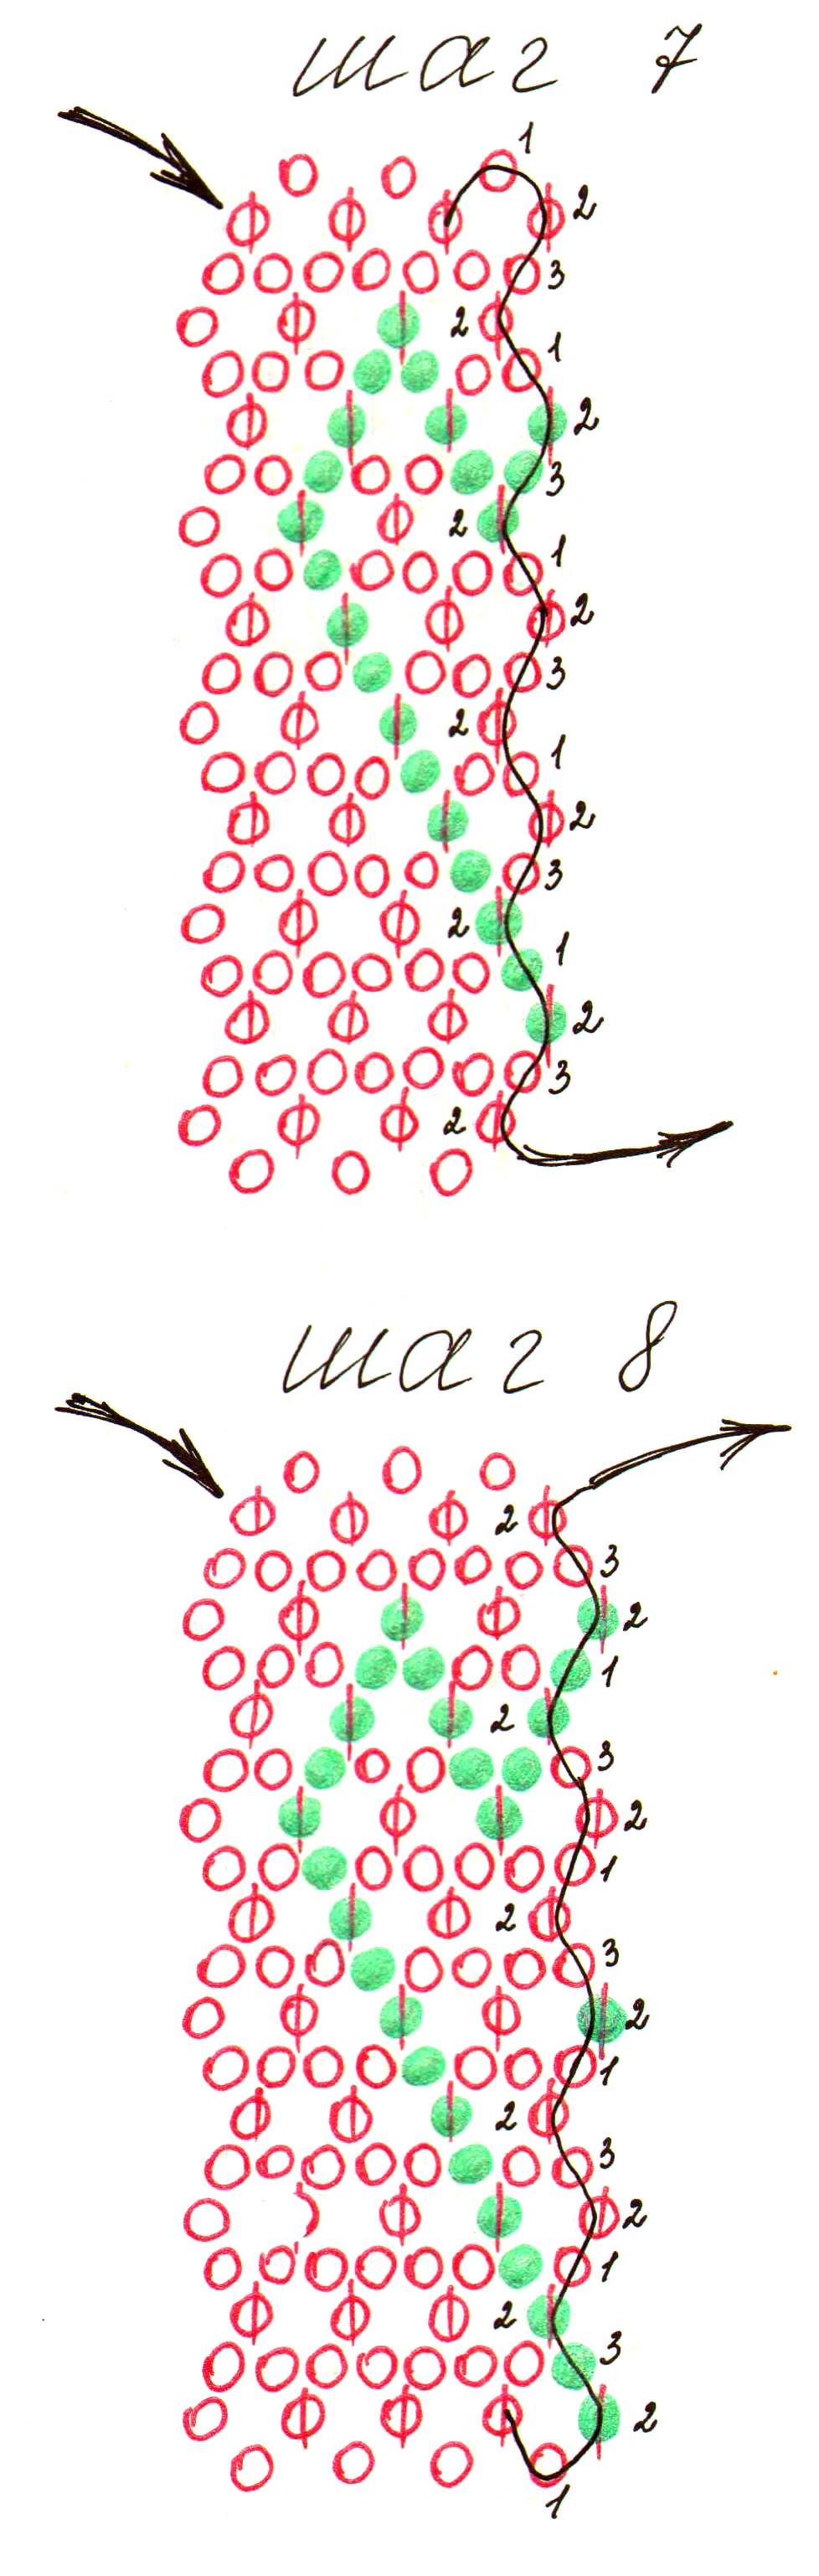 шаг 7
1
2
3
2
1
2
3
2
1
2
3
2
1
2
3
2
1
2
3
2
шаг 8
2
3
2
1
2
3
2
1
2
3
2
1
2
3
2
1
2
3
2
1